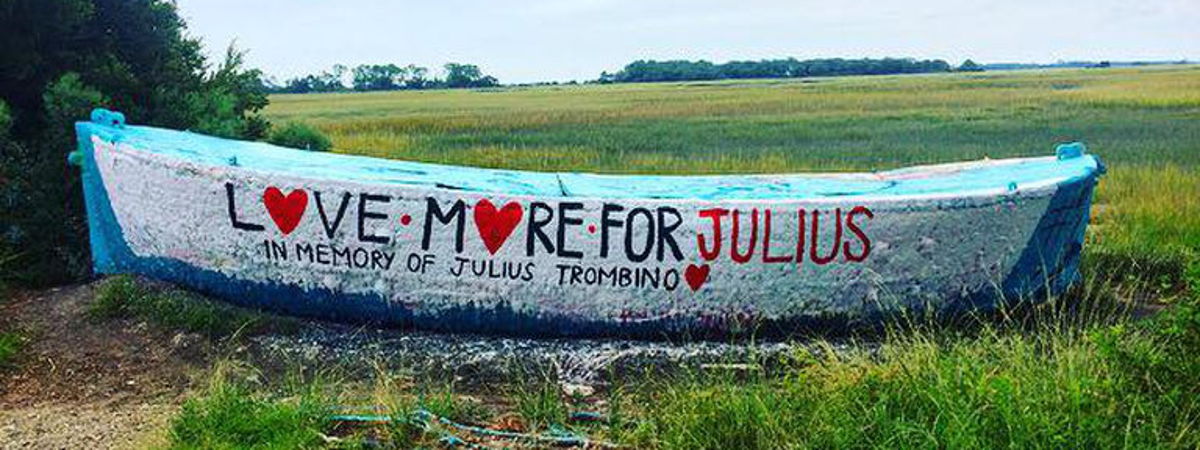 LOVE·MORE·FOR JULIUS
IN MEMORY OF JULIUS TROMBINO